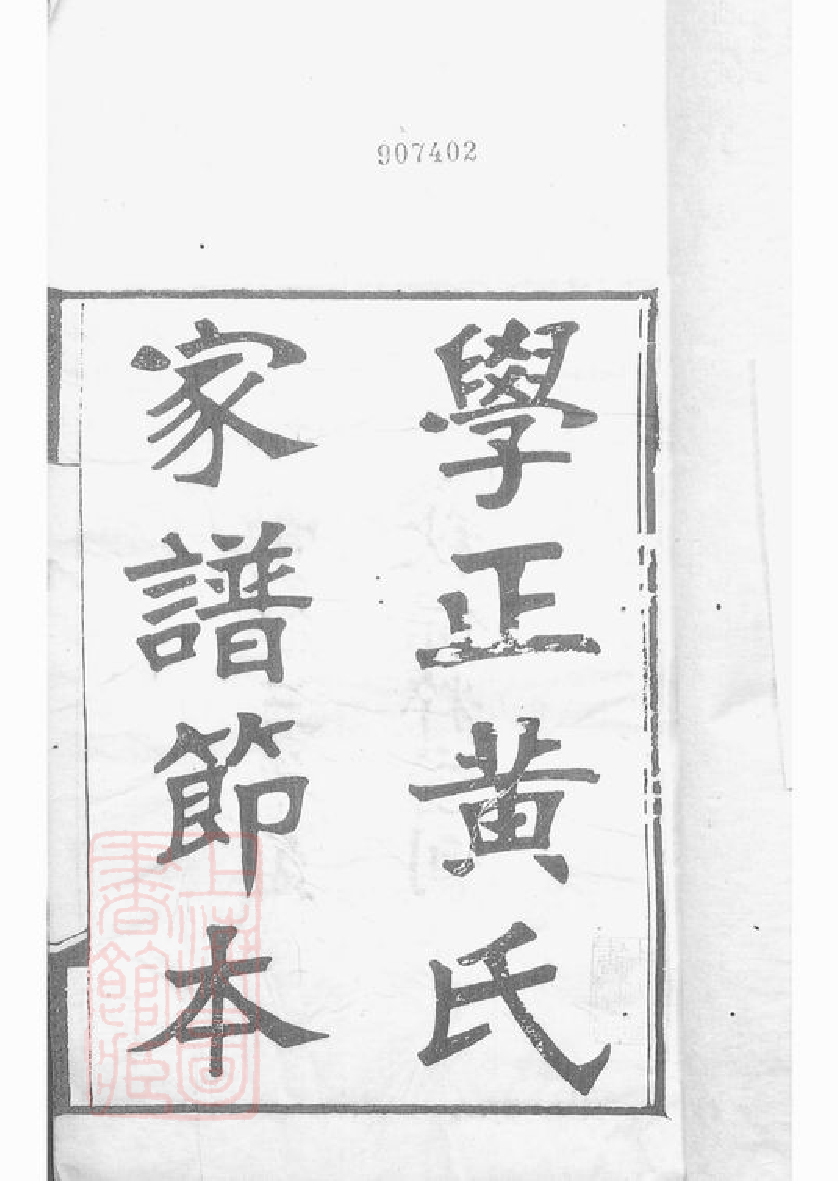 907402
學正黄氏
家譜節本
上海圖
書館藏